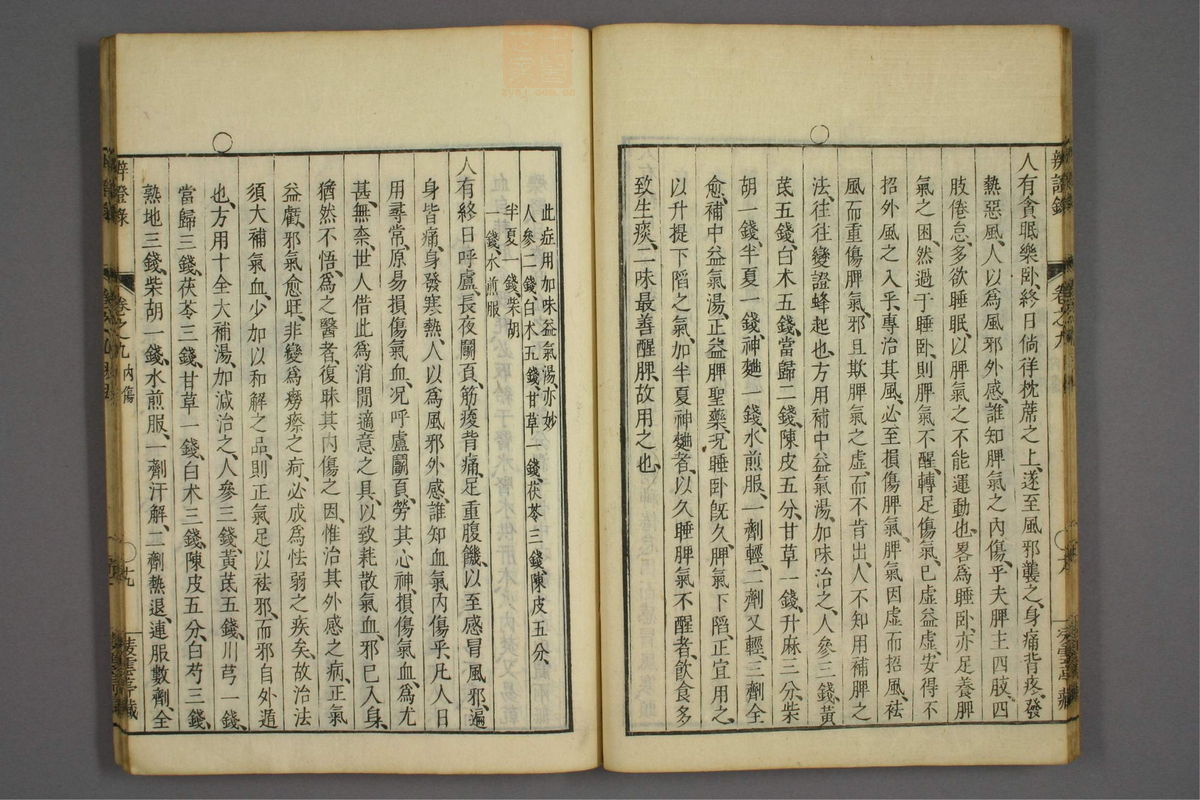 人有貪眠樂卧、終日倘徉枕蓆之上、遂至風邪襲之、身痛背疼、發
熱惡風、人以爲風邪外感、誰知脾氣之内傷乎、夫脾主四肢、四
肢倦怠、多欲睡眠、以脾氣之不能運動也、畧爲睡卧、亦足養脾
氣之困、然過于睡卧、則脾氣不醒、轉足傷氣、已虚益虚、安得不
招外風之入乎、專治其風、必至損傷脾氣、脾氣因虚而招風、袪
風而重傷脾氣、邪且欺脾氣之虚、而不肯出、人不知用補脾之
法、往往變證蜂起也、方用補中益氣湯、加味治之、人參三錢、黃
芪五錢、白术五錢、當歸二錢、陳皮五分、甘草一錢、升麻三分、柴
胡一錢、半夏一錢、神麯一錢、水煎服、一劑輕、二劑又輕、三劑全
愈、補中益氣湯、正益脾聖藥、况睡卧旣久、脾氣下陷、正宜用之、
以升提下陷之氣、加半夏神麯者、以久睡脾氣不醒者、飲食多
致生痰、二味最善醒脾、故用之也、
此症用加味益氣湯亦妙
人參二錢、白术五錢、甘草一錢、茯苓三錢、陳皮五分、
半夏一錢、柴胡
一錢、水煎服
人有終日呼盧、長夜鬬頁、筋痠背痛、足重腹饑、以至感冒風邪、遍
身皆痛、身發寒熱、人以爲風邪外感、誰知血氣内傷乎、凡人日
用尋常、原易損傷氣血、况呼盧鬬頁、勞其心神、損傷氣血、爲尤
甚、無奈世人借此爲消閒適意之具、以致耗散氣血、邪已入身、
猶然不悟、爲之醫者、復昧其内傷之因、惟治其外感之病、正氣
益虧、邪氣愈旺、非變爲癆瘵之疴、必成爲怯弱之疾矣、故治法
須大補氣血、少加以和解之品、則正氣足以袪邪、而邪自外遁
也、方用十全大補湯、加減治之、人參三錢、黃芪五錢、川芎一錢、
當歸三錢、茯苓三錢、甘草一錢、白术三錢、陳皮五分、白芍三錢、
熟地三錢、柴胡一錢、水煎服、一劑汗解、二劑熱退、連服數劑、全
辨證錄
卷之九 内傷
九